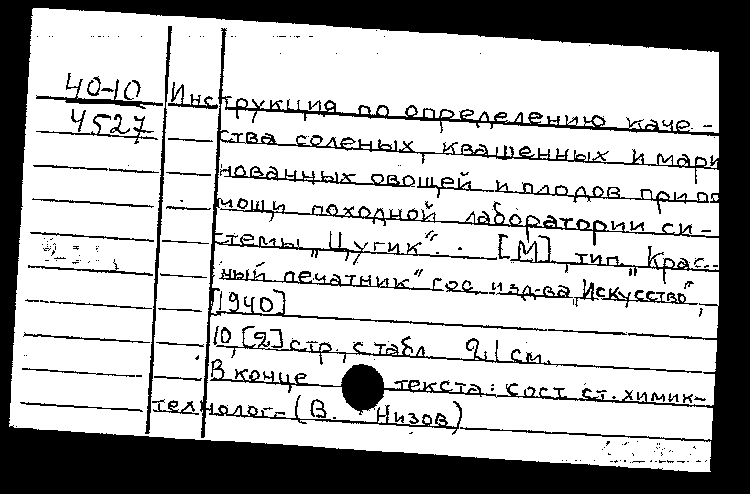 40-10
4527
Инструкция по определению каче-
ства соленых, квашенных и мари
нованных овощей и плодов при по
мощи походной лаборатории си-
стемы „Цугик“. . [М], тип. „Крас-
ный печатник“ гос. изд-ва „Искусство“,
[1940]
10, [2] стр., с табл. 21 см.
В конце текста: сост. ст. химик-
технолог- (В. Низов)